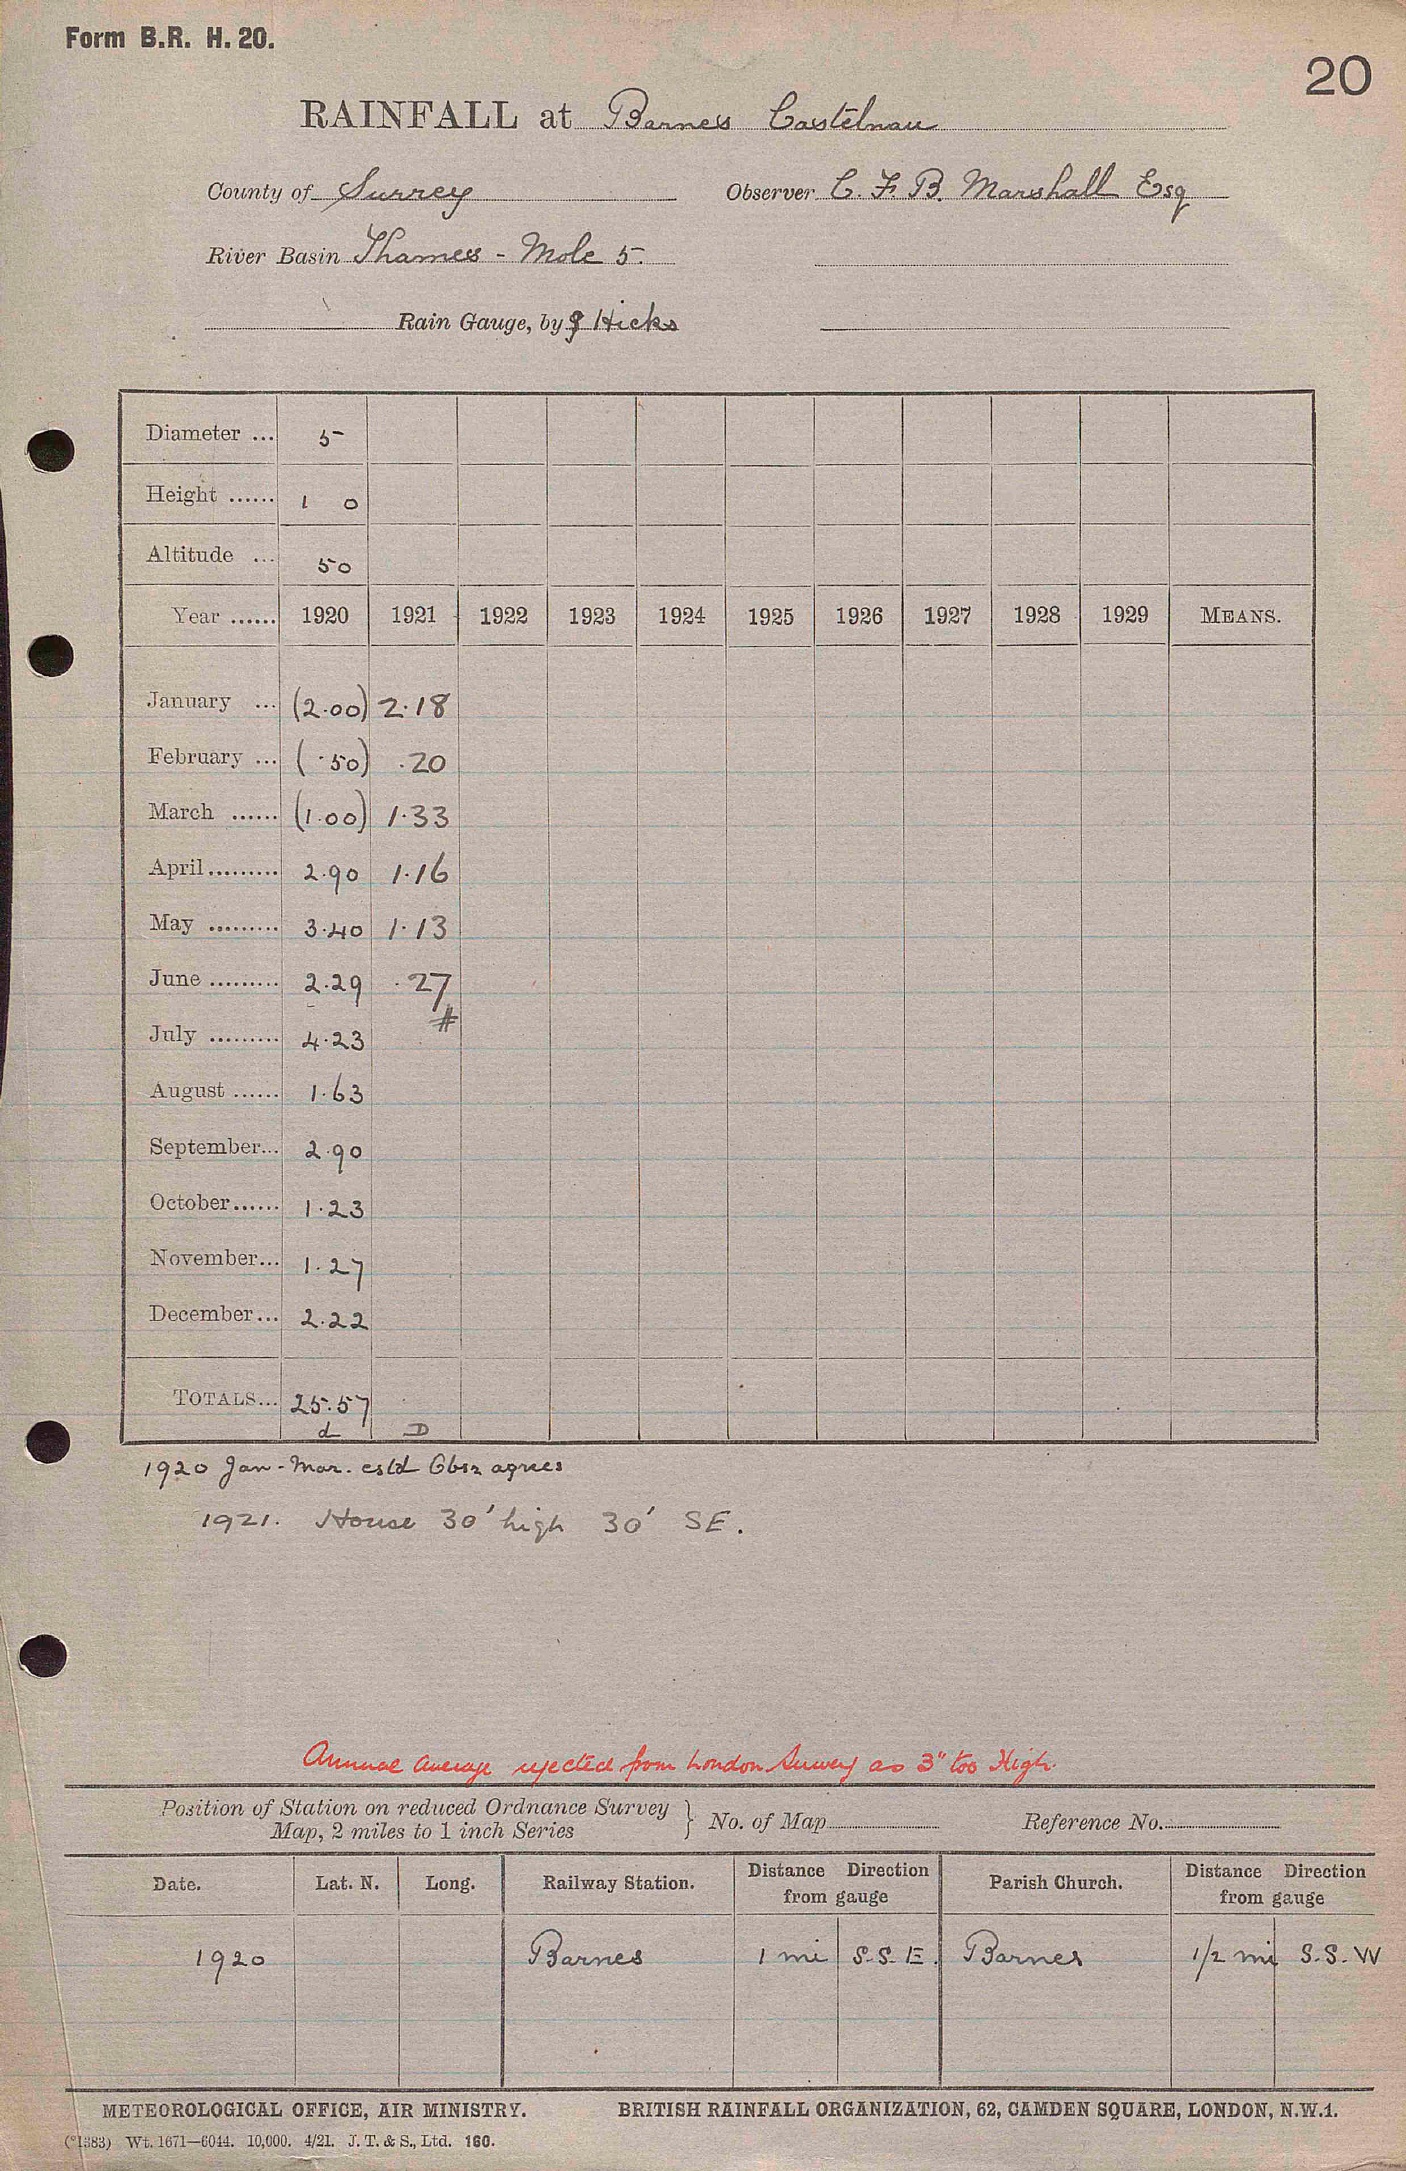 Form B.R. H. 20.
20
RAINFALL at Barnes Castelnau
County of Surrey Observer C. F. B. Marshall Esq
River Basin Thames - Mole 5.
Rain Gauge, by Hicks
Diameter ... 5
Height ...... 1 0
Altitude ... 50
Year ...... 1920 1921 1922 1923 1924 1925 1926 1927 1928 1929 MEANS.
January ... (2.00) 2.18
February ... ( .50) .20
March ...... (1.00) 1.33
April ......... 2.90 1.16
May ......... 3.40 1.13
June ......... 2.29 .27
#
July ......... 4.23
August ...... 1.63
September... 2.90
October...... 1.23
November... 1.27
December... 2.22
TOTALS... 25.57
d D
1920 Jan - Mar. estd Obsr agrees
1921. House 30' high 30' SE.
Annual average rejected from London Survey as 3" too High.
Position of Station on reduced Ordnance Survey
Map, 2 miles to 1 inch Series } No. of Map Reference No.
Date. Lat. N. Long. Railway Station. Distance Direction from gauge Parish Church. Distance Direction from gauge
1920 Barnes 1 mi S.S.E. Barnes 1/2 mi S.S.W
METEOROLOGICAL OFFICE, AIR MINISTRY. BRITISH RAINFALL ORGANIZATION, 62, CAMDEN SQUARE, LONDON, N.W.1.
(*1383) Wt. 1671—6044. 10,000. 4/21. J. T. & S., Ltd. 160.